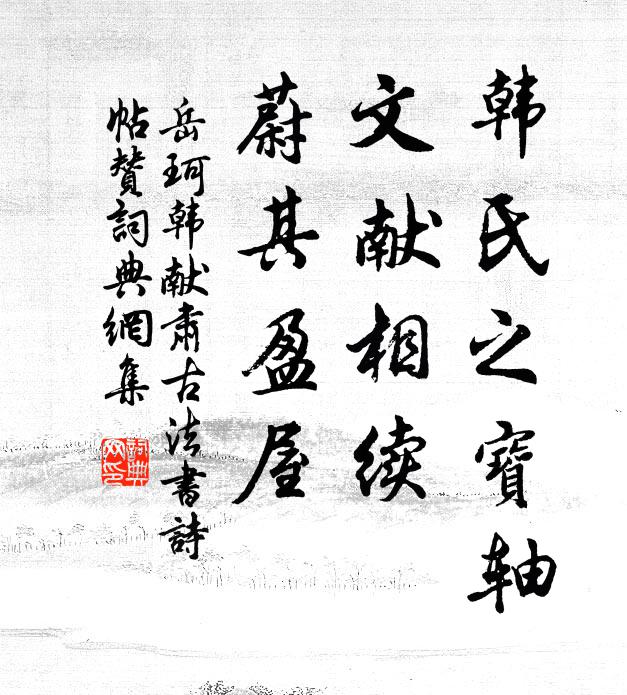 韩氏之寶轴
文献相续
蔚其盈屋
岳珂韩献肅古法書詩
帖贊詞典網集
詞典网印